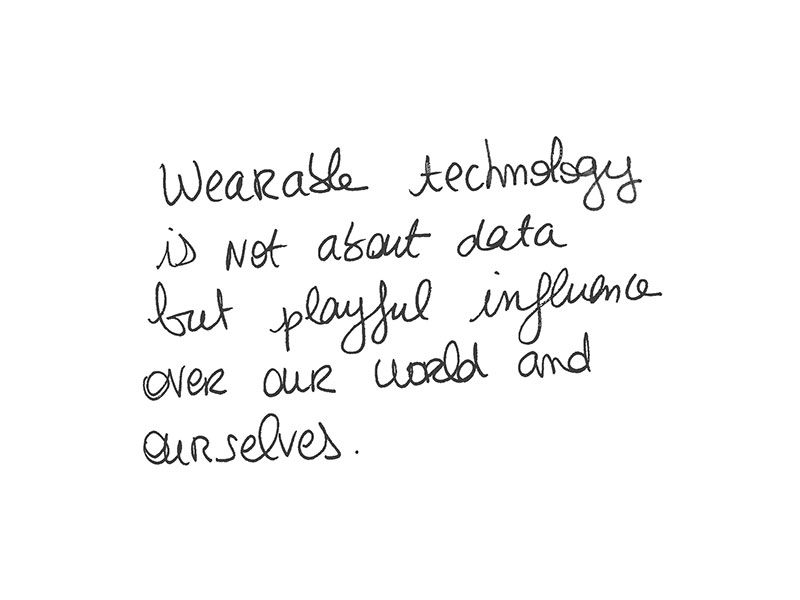 Wearable technology
is not about data
but playful influence
over our world and
ourselves.